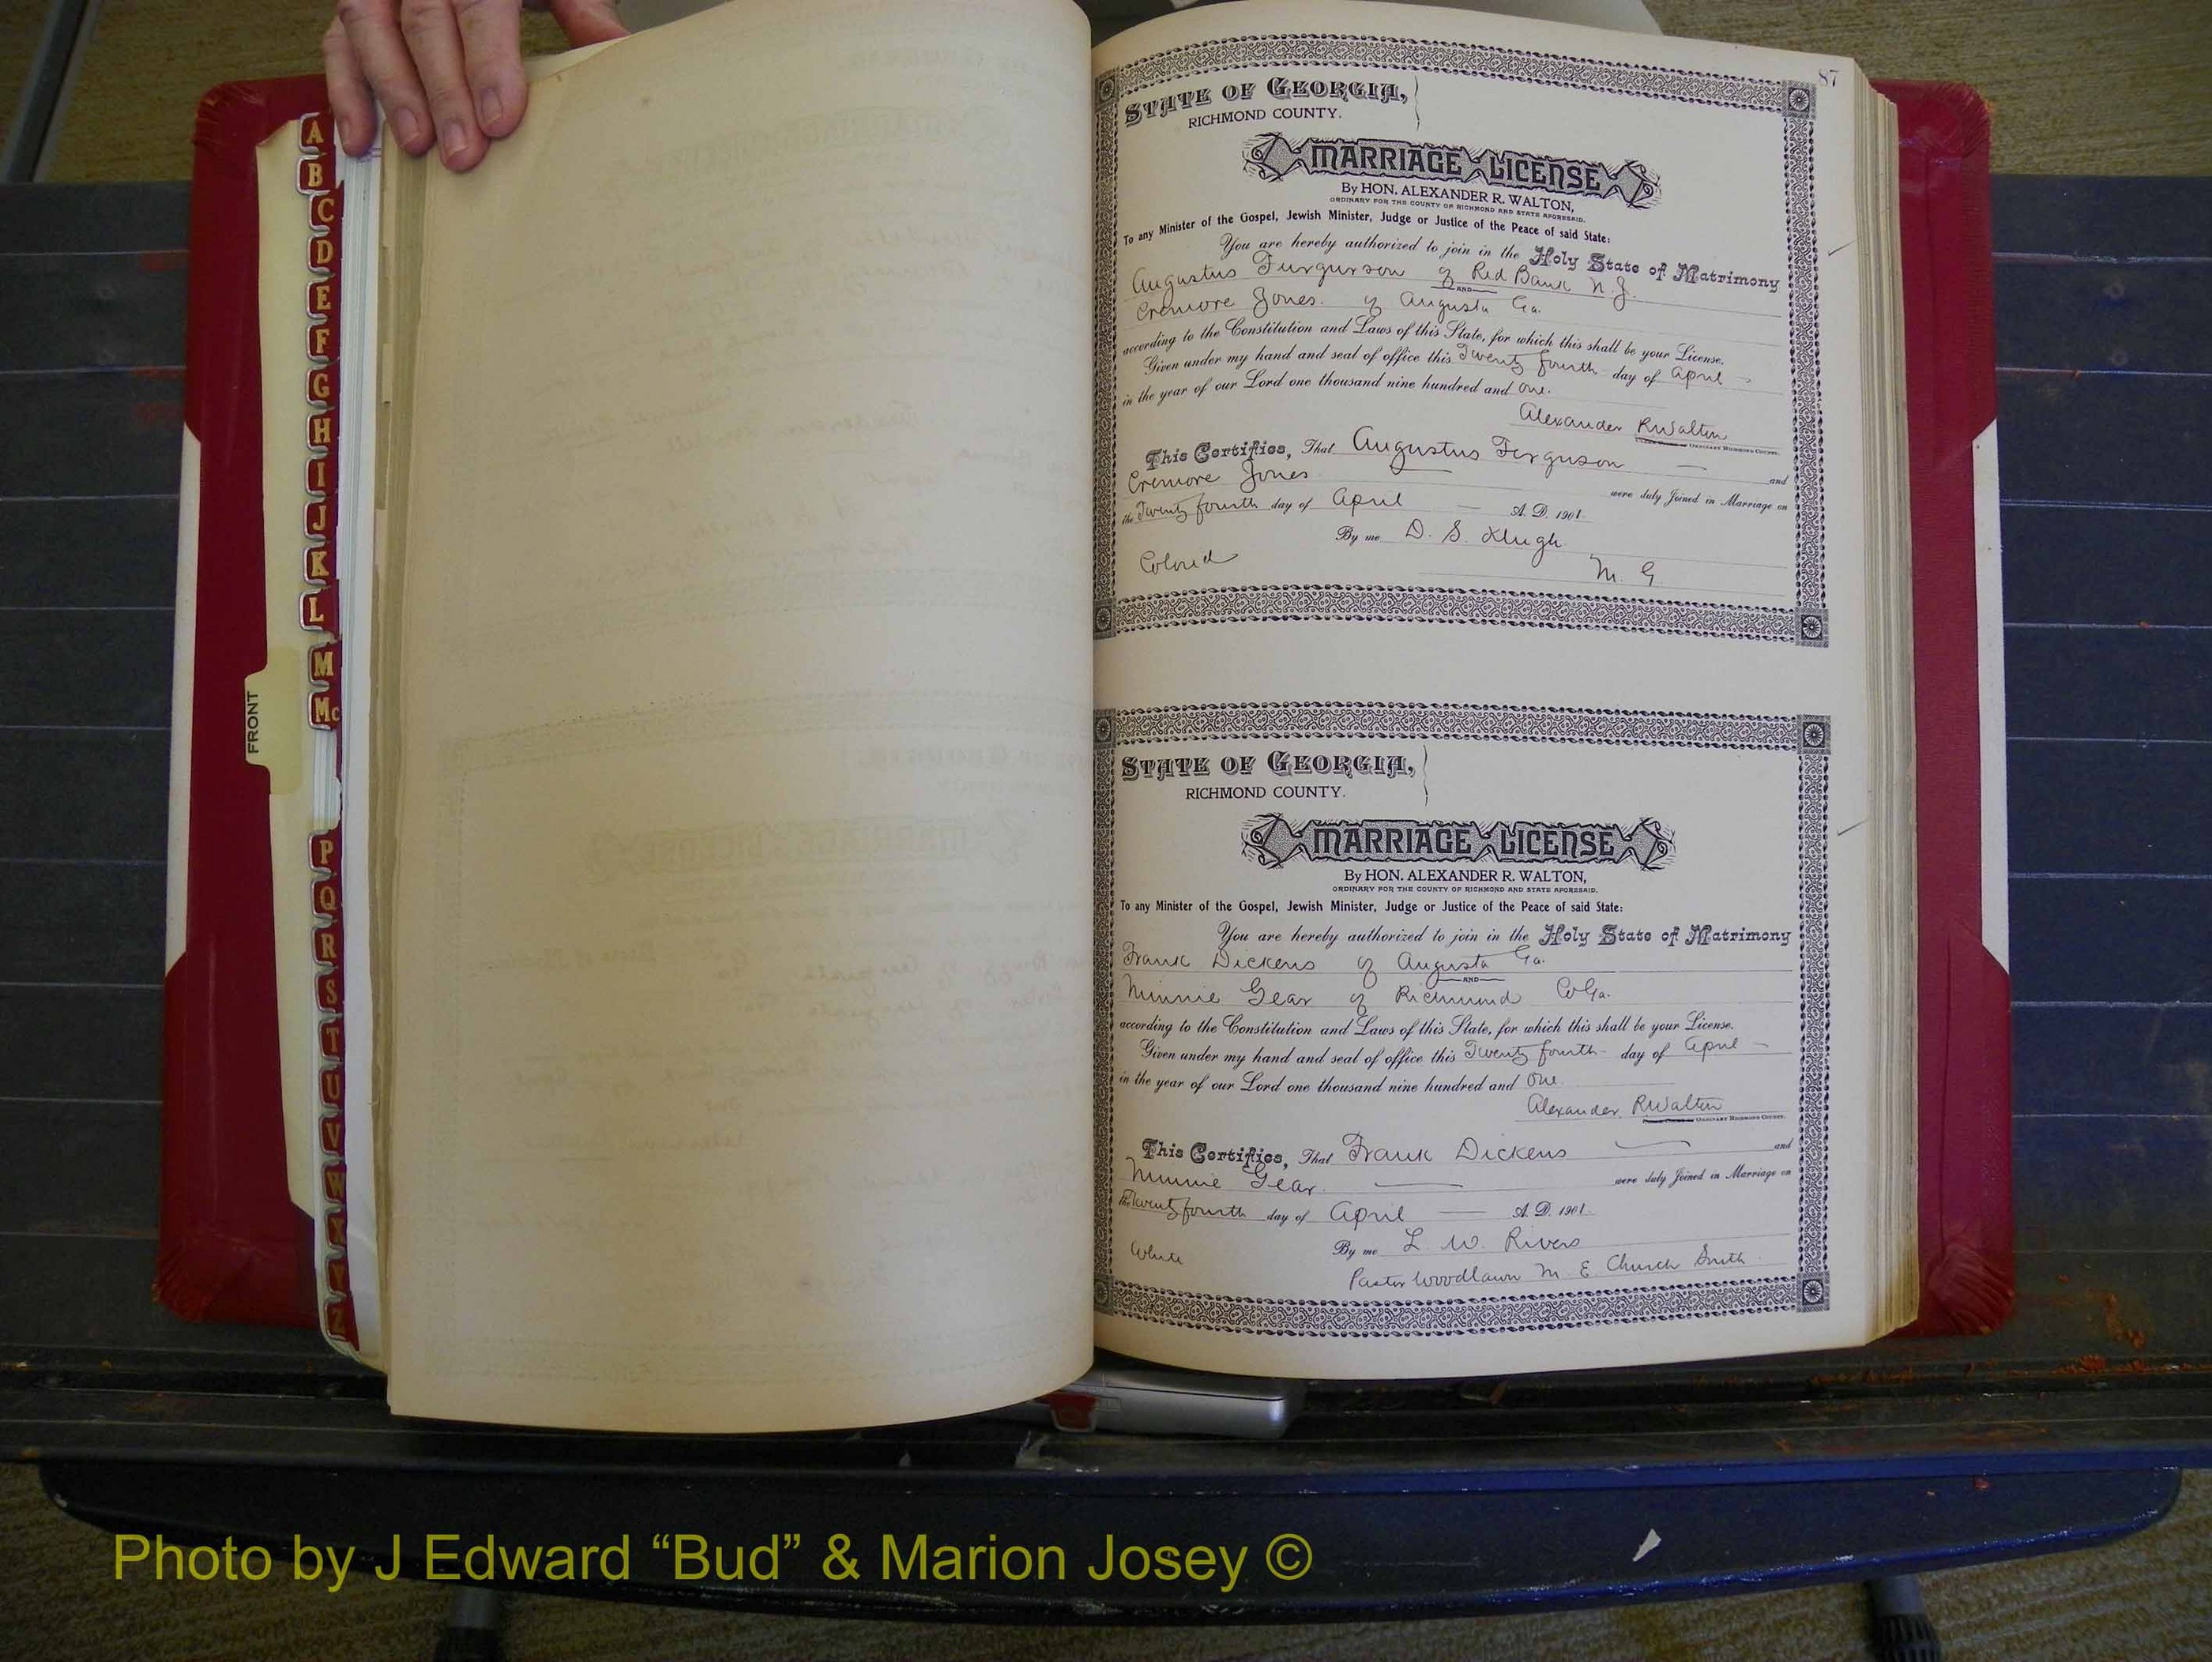 A
B
C
D
E
F
G
H
I
J
K
L
M
Mc
P
Q
R
S
T
U
V
W
X
Y
Z
FRONT
87
STATE OF GEORGIA,
RICHMOND COUNTY.
MARRIAGE LICENSE
By HON. ALEXANDER R. WALTON,
ORDINARY FOR THE COUNTY OF RICHMOND AND STATE AFORESAID.
To any Minister of the Gospel, Jewish Minister, Judge or Justice of the Peace of said State:
You are hereby authorized to join in the Holy State of Matrimony
Augustus Furgurson of Red Bank N.J.
AND
Cremore Jones. of Augusta Ga.
according to the Constitution and Laws of this State, for which this shall be your License.
Given under my hand and seal of office this Twenty fourth day of April
in the year of our Lord one thousand nine hundred and one.
Alexander R Walton
ORDINARY RICHMOND COUNTY.
This Certifies, That Augustus Ferguson and
Cremore Jones were duly Joined in Marriage on
the Twenty fourth day of April A. D. 1901.
By me D. S. Klugh.
Colored M. G
STATE OF GEORGIA,
RICHMOND COUNTY.
MARRIAGE LICENSE
By HON. ALEXANDER R. WALTON,
ORDINARY FOR THE COUNTY OF RICHMOND AND STATE AFORESAID.
To any Minister of the Gospel, Jewish Minister, Judge or Justice of the Peace of said State:
You are hereby authorized to join in the Holy State of Matrimony
Frank Dickens of Augusta Ga.
AND
Minnie Gear of Richmond Co Ga.
according to the Constitution and Laws of this State, for which this shall be your License.
Given under my hand and seal of office this Twenty fourth day of April
in the year of our Lord one thousand nine hundred and One
Alexander R Walton
ORDINARY RICHMOND COUNTY.
This Certifies, That Frank Dickens and
Minnie Gear. were duly Joined in Marriage on
the Twenty fourth day of April A. D. 1901.
White By me L. W. Rivers
Pastor Woodlawn M. E. Church South
Photo by J Edward “Bud” & Marion Josey ©